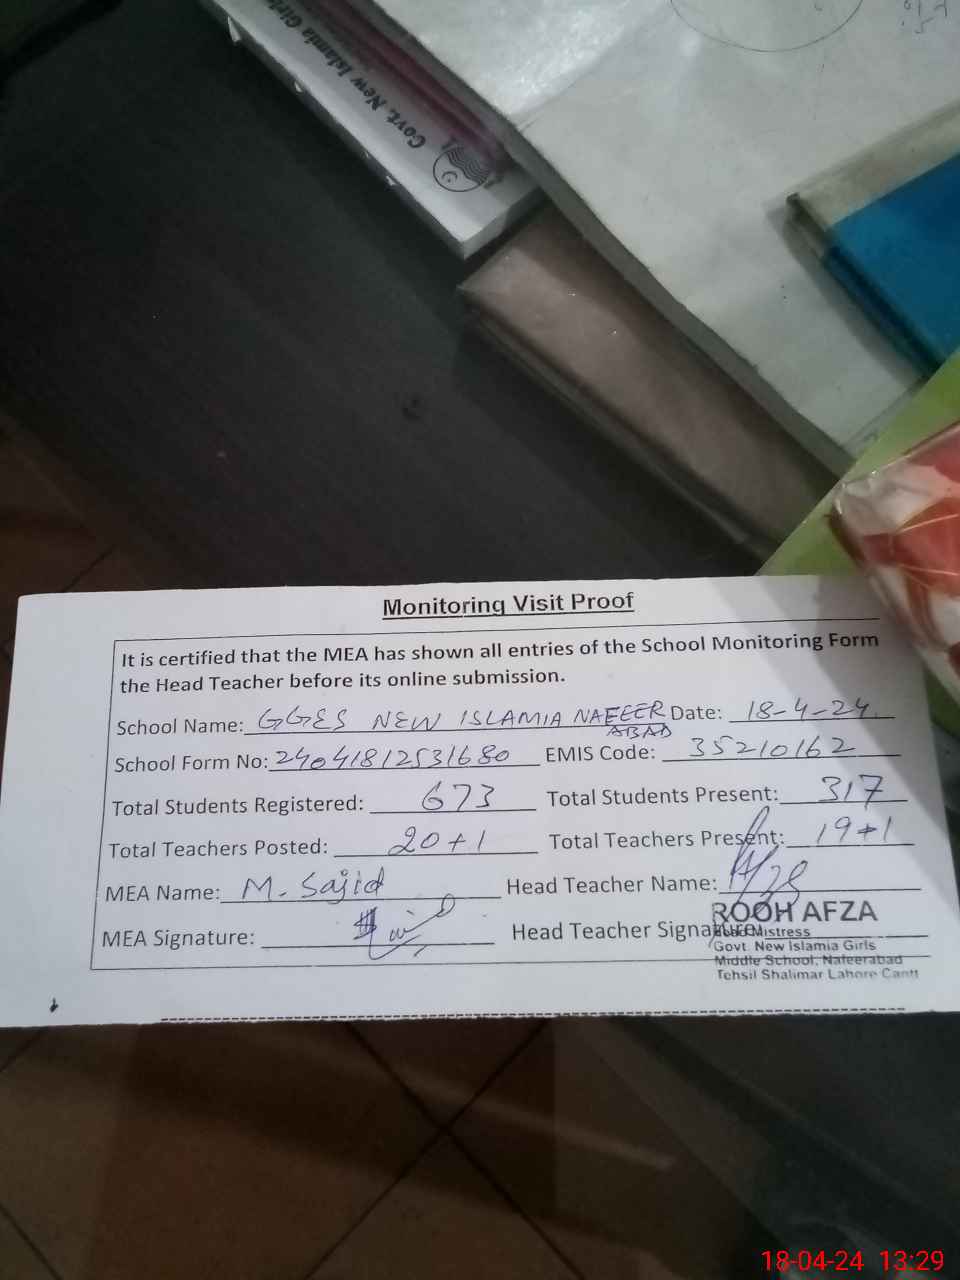 Govt. New Islamia Girls
Monitoring Visit Proof
It is certified that the MEA has shown all entries of the School Monitoring Form
the Head Teacher before its online submission.
School Name: GGES NEW ISLAMIA NAFEER ABAD Date: 18-4-24
School Form No: 24041812531680 EMIS Code: 35210162
Total Students Registered: 673 Total Students Present: 317
Total Teachers Posted: 20+1 Total Teachers Present: 19+1
MEA Name: M. Sajid Head Teacher Name:
MEA Signature: Head Teacher Signature:
ROOH AFZA
Head Mistress
Govt. New Islamia Girls
Middle School, Nafeerabad
Tehsil Shalimar Lahore Cantt
18-04-24 13:29